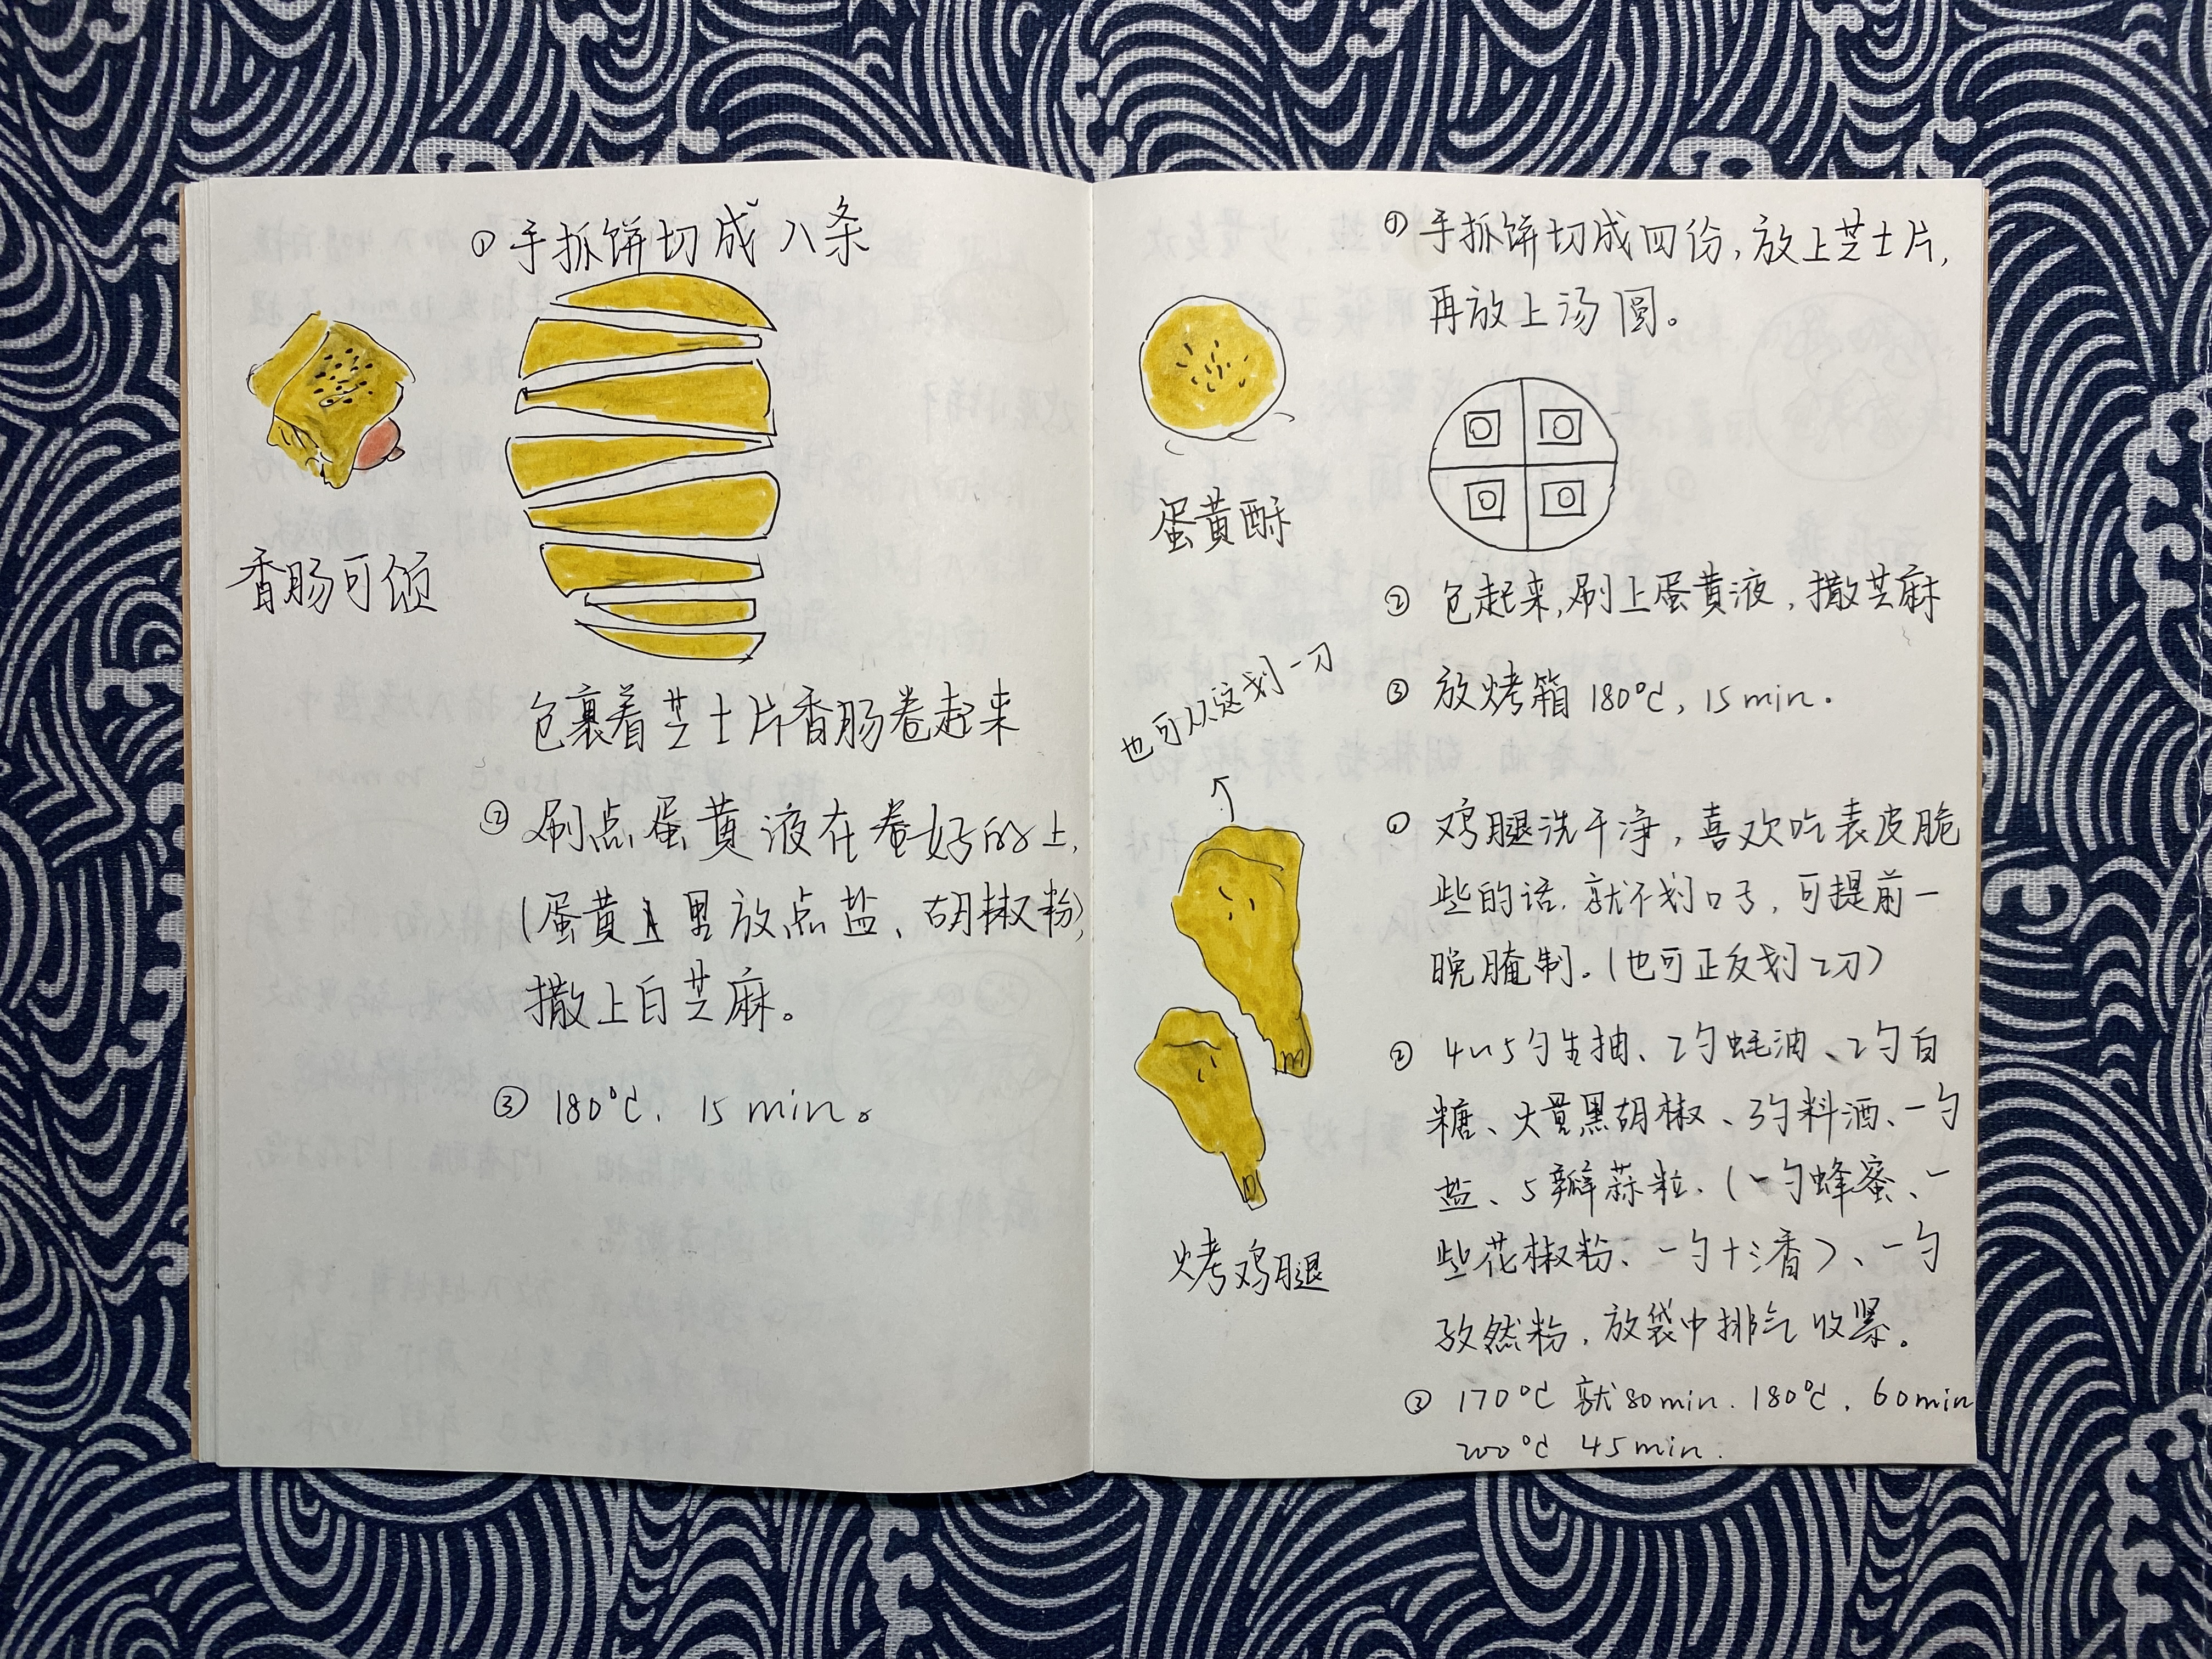 ① 手抓饼切成八条
香肠可颂
包裹着芝士片香肠卷起来
② 刷点蛋黄液在卷好的上,
(蛋黄里放点盐、胡椒粉)
撒上白芝麻。
③ 180℃、15min。
① 手抓饼切成四份,放上芝士片,
再放上汤圆。
蛋黄酥
② 包起来,刷上蛋黄液,撒芝麻
③ 放烤箱180℃,15min.
也可从这划一刀
① 鸡腿洗干净,喜欢吃表皮脆
些的话.就不划口子,可提前一
晚腌制。(也可正反划2刀)
② 4~5勺生抽、2勺蚝油、2勺白
糖、黑胡椒、3勺料酒、一勺
盐、5瓣蒜粒.(一勺蜂蜜、一
些花椒粉、一勺十三香)、一勺
孜然粉,放袋中排气收紧。
烤鸡腿
③ 170℃就80min.180℃,60min
200℃ 45min.